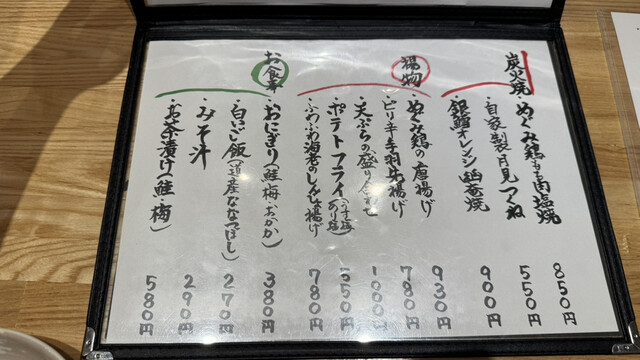 炭火焼
・ぬくみ鶏もも肉塩焼 850円
・自家製月見つくね 550円
・銀鱈オレンジ幽菴焼 900円
揚物
・ぬくみ鶏の唐揚げ 930円
・ピリ辛手羽先揚げ 780円
・天ぷらの盛り合わせ 1000円
・ポテトフライ(うす塩 あり塩) 550円
・ふわふわ海老のしんじょ揚げ 780円
お食事
・おにぎり(鮭・梅・おかか) 380円
・白ごい飯(道産ななつぼし) 270円
・みそ汁 290円
・お茶漬け(鮭・梅) 580円